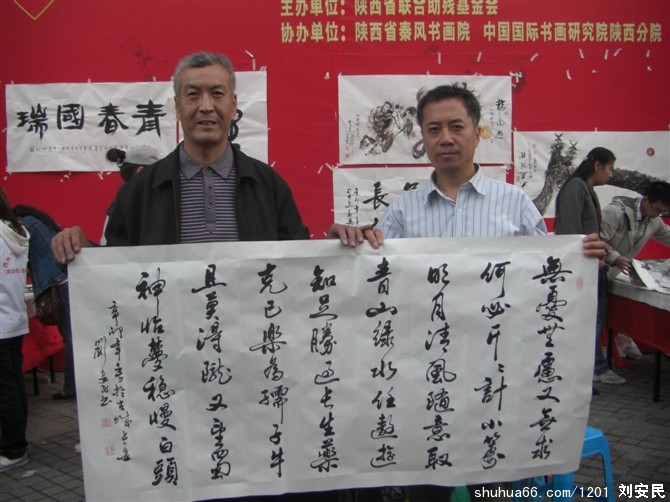 主办单位：陕西省联合助残基金会
协办单位：陕西省秦风书画院 中国国际书画研究院陕西分院
青春國瑞
無憂無慮又無求
何必斤斤計小籌
明月清風隨意取
青山綠水任遨遊
知足勝過長生藥
克己樂為孺子牛
且莫得隴又望蜀
神怡夢穩慢白頭
辛卯年
shuhua66.com/1201 刘安民